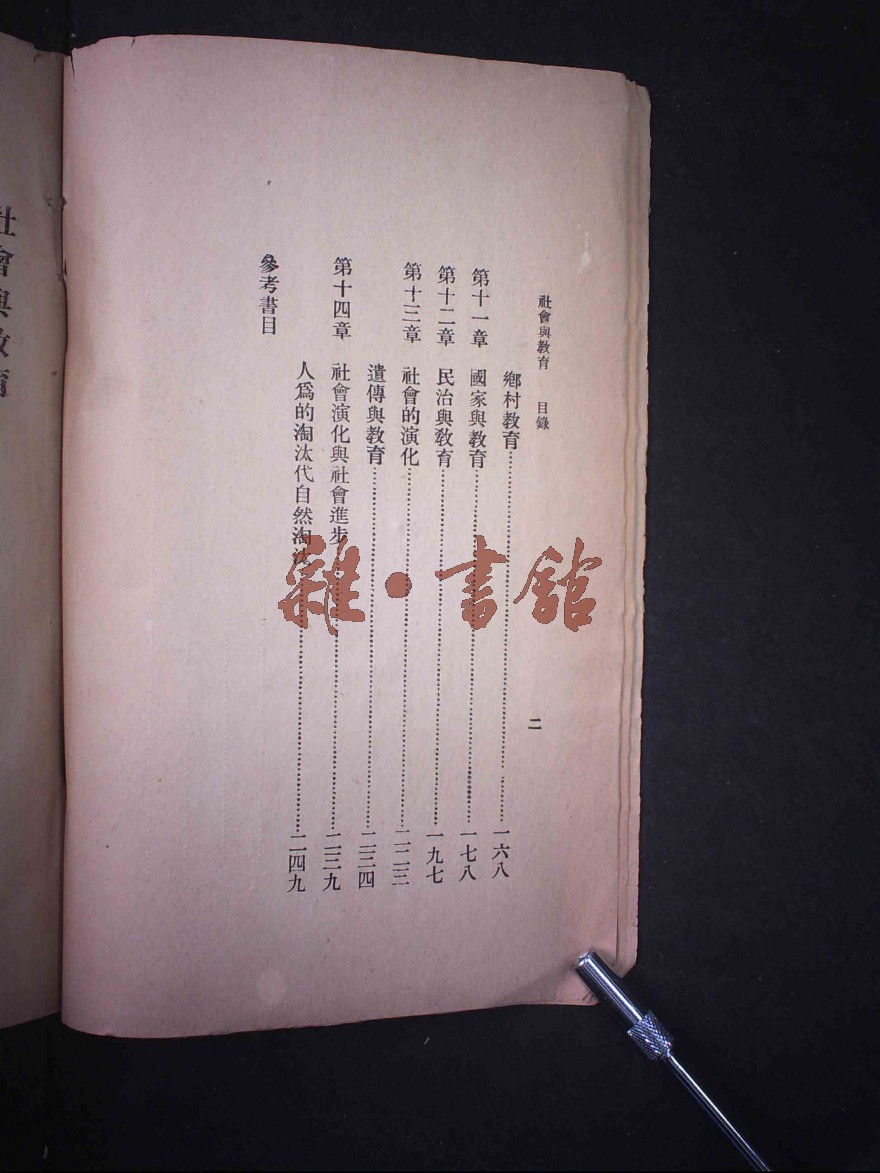 社會與教育 目錄 二
鄉村教育 一六八
第十一章 國家與教育 一七八
第十二章 民治與教育 一九七
第十三章 社會的演化 二二三
遺傳與教育 二三四
第十四章 社會演化與社會進步 二三九
人爲的淘汰代自然淘汰 二四九
參考書目
社會與教育
雜·書館